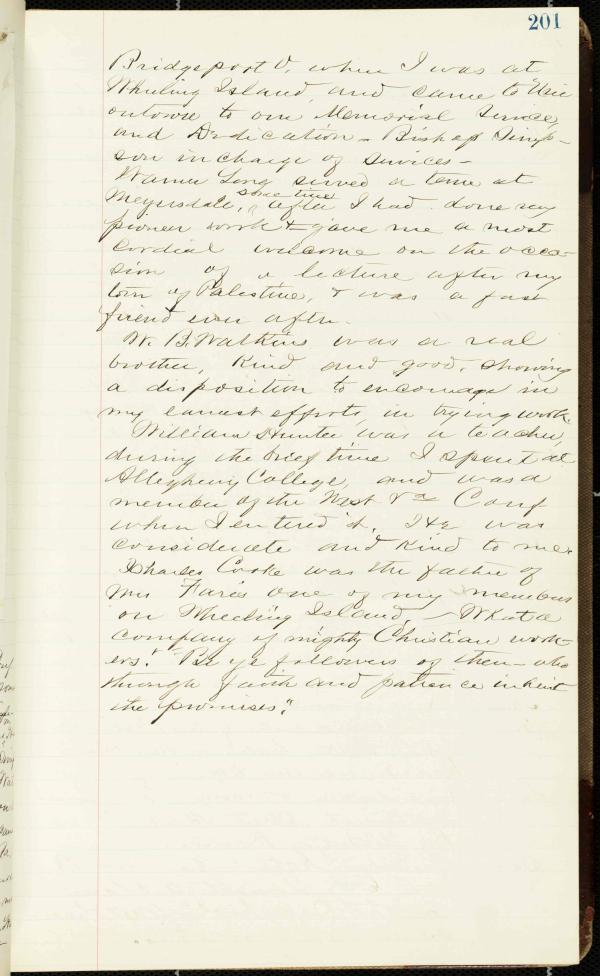 201
Bridgeport O. when I was at
Wheeling Island, and came to
to our Memorial Service,
and Dedication - Bishop Simp-
son in charge of services -
Warner Long served a term at
Meyersdale, sometime after I had done my
pioneer work & gave me a most
cordial welcome on the occa-
sion of a lecture after my
tour of Palestine, & was a fast
friend ever after.
W. B. Watkins was a real
brother, kind and good, showing
a disposition to encourage in
my earnest efforts, in trying work.
William Hunter was a teacher,
during the brief time I spent at
Allegheny College, and was a
member of the West Va Conf
when I entered it. He was
considerate and kind to me.
Charles Cooke was the father of
Mrs Faris one of my members
on Wheeling Island, - What a
company of mighty Christian work-
ers! "Be ye followers of them - who
through faith and patience inherit
the promises."